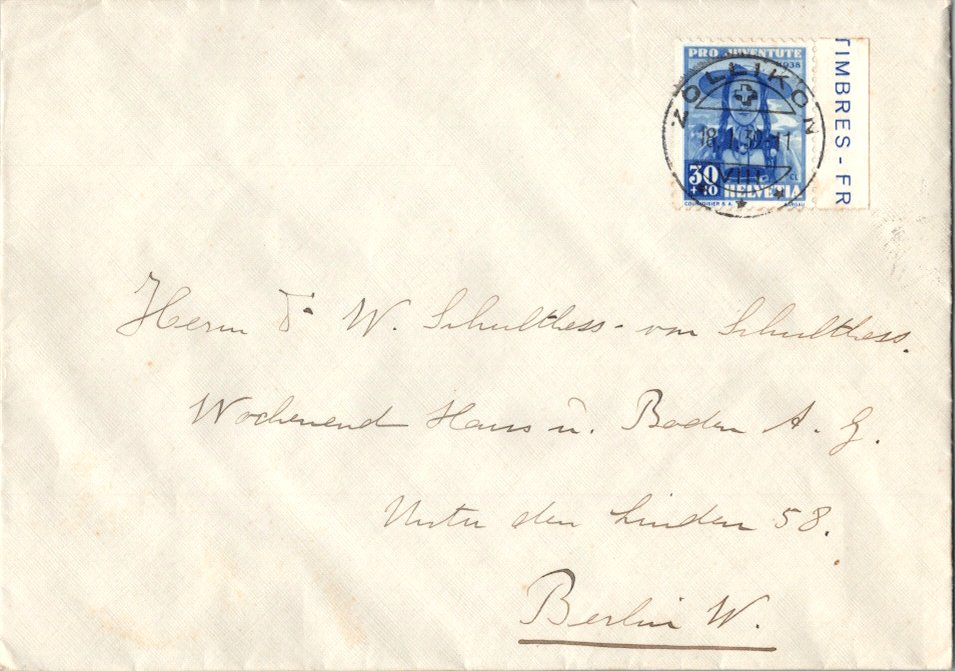 PRO JUVENTUTE
1938
ZOLLIKON
18. 1. 39-11
VIII
30
+10
HELVETIA
COURVOISIER S.A.
TIMBRES - FR
Herrn W. Schulthess - von Schulthess.
Wochenend Haus u. Boden A. G.
Unter den Linden 58.
Berlin W.